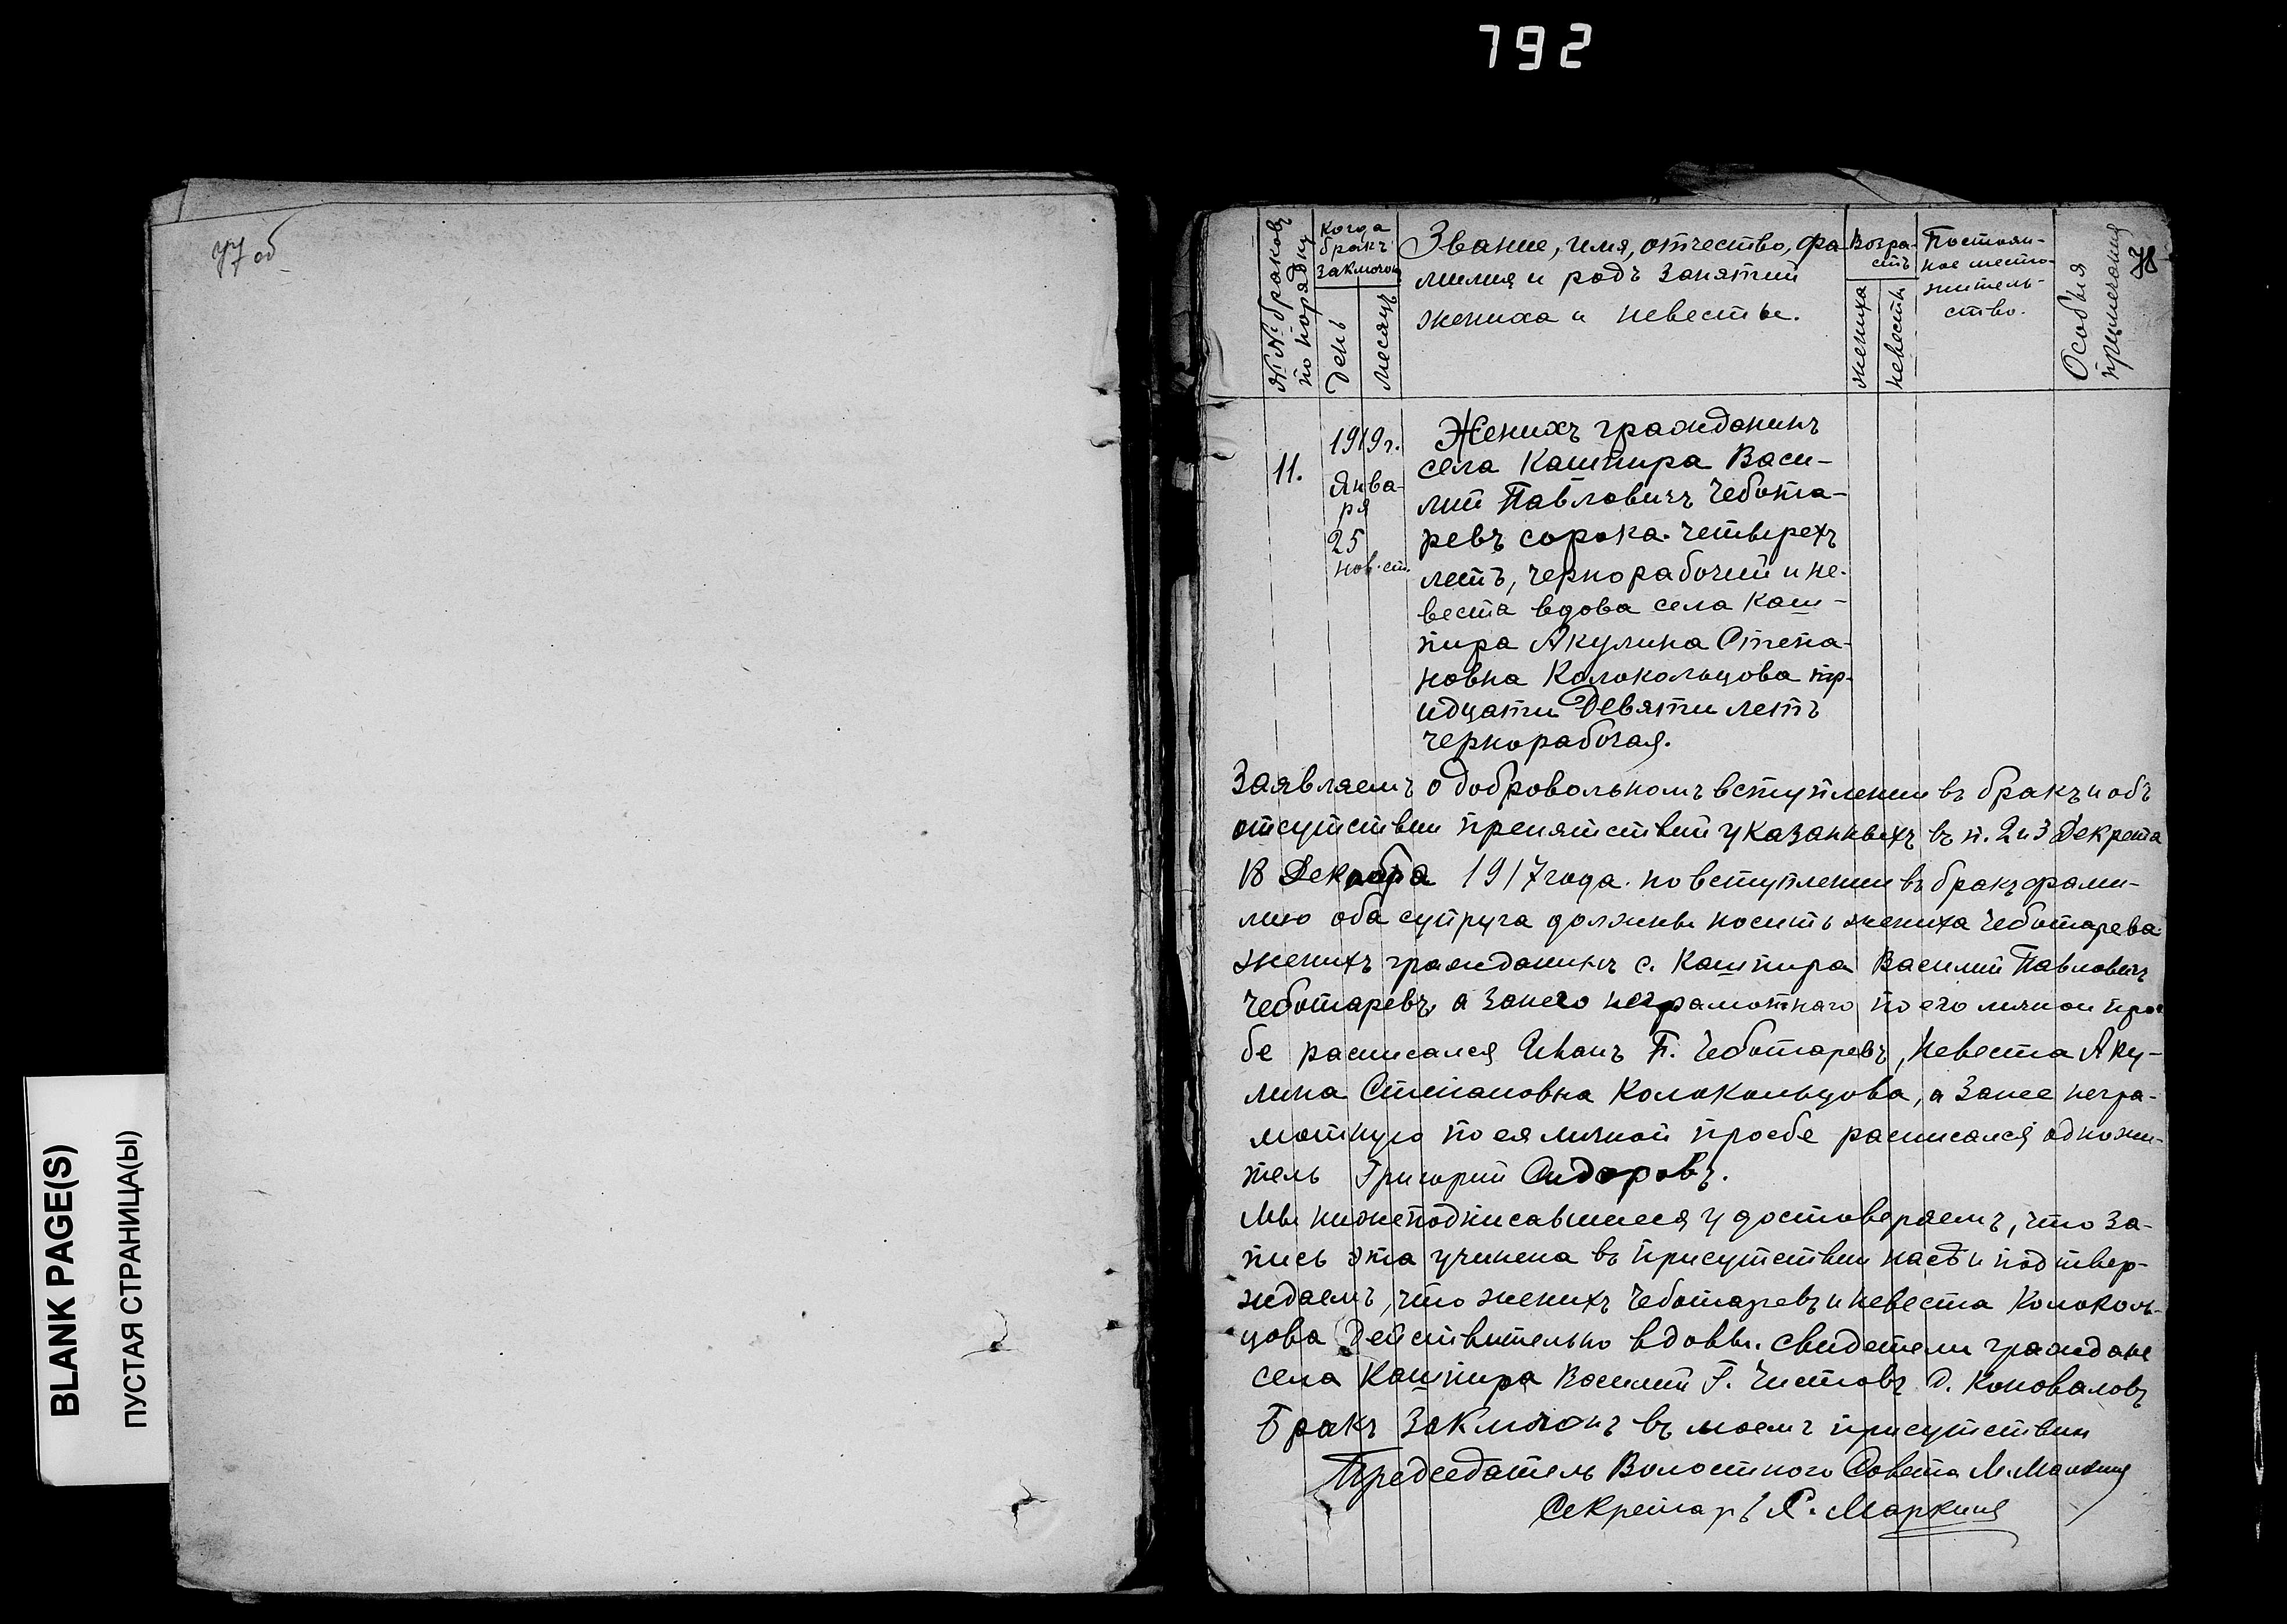 792
об
BLANK PAGE(S)
ПУСТАЯ СТРАНИЦА(Ы)
№№ браковъ
по порядку
Когда
бракъ
заключон
День
Месяцъ
Звание, имя, отчество, фа-
милия и родъ занятий
жениха и невесты.
Возра-
стъ
жениха
невесты
Постоян-
ное место-
житель-
ство.
Особыя
примечания
11.
1919 г.
Янва-
ря
25
нов. ст.
Женихъ гражданинъ
села Кашпира Васи-
лий Павловичъ Чебота-
ревъ сорока четырехъ
летъ, чернорабочий и не-
веста вдова села Каш-
пира Акулина Степа-
новна Колокольцова тр-
идцати девяти летъ
чернорабочая.
Заявляемъ о добровольномъ вступлении въ бракъ и объ
отсутствии препятствий указанныхъ въ п. 2 и 3 Декрета
18 Декабра 1917 года. по вступлении въ бракъ фами-
лию оба супруга должны носить жениха Чеботарева
женихъ гражданинъ с. Кашпира Василий Павловичъ
Чеботаревъ, а за него неграмотнаго по его личной прос-
бе расписался Иванъ П. Чеботаревъ, Невеста Аку-
лина Степановна Колокольцова, а за нее негра-
мотную по ея личной просбе расписался одножи-
тель Григорий Сидоровъ.
Мы нижеподписавшиеся удостоверяемъ, что за-
пись эта учинена въ присутствии насъ и подтвер-
ждаемъ, что женихъ Чеботаревъ и невеста Колоколь-
цова действительно вдовы. Свидетели граждане
села Кашпира Василий Г. Чистовъ Д. Коноваловъ
Бракъ заключонъ въ моемъ присутствии
Председатель Волостного Совета М.
Секретарь Маркинъ